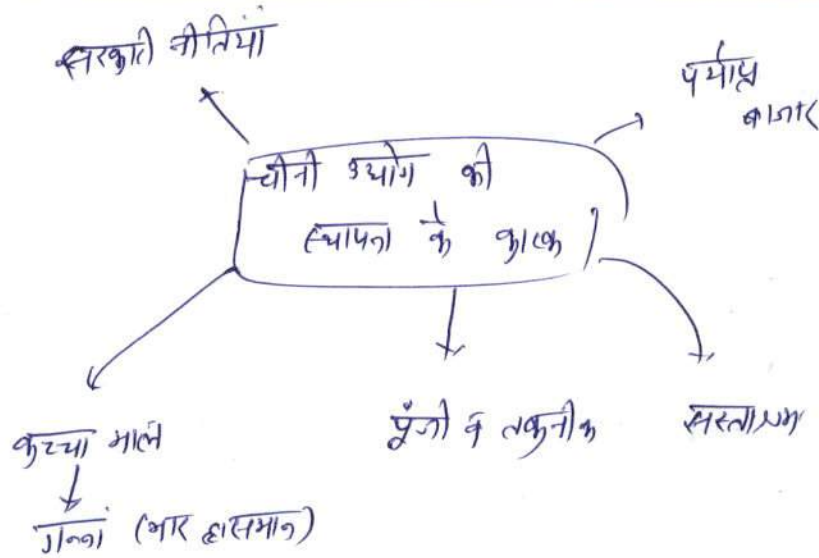 सरकारी नीतियां
पर्याप्त
बाजार
चीनी उद्योग की
स्थापना के कारक
कच्चा माल
गन्ना (भार ह्रासमान)
पूंजी व तकनीक
सस्ता श्रम